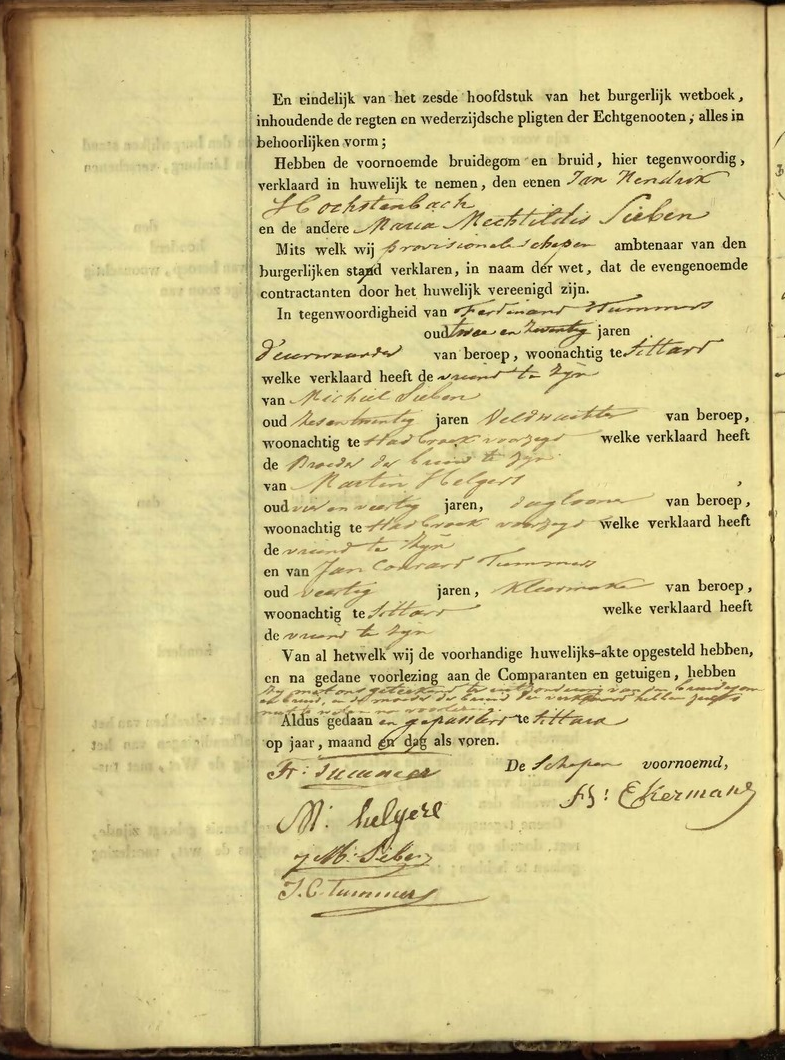 En eindelijk van het zesde hoofdstuk van het burgerlijk wetboek,
inhoudende de regten en wederzijdsche pligten der Echtgenooten, alles in
behoorlijken vorm;
Hebben de voornoemde bruidegom en bruid, hier tegenwoordig,
verklaard in huwelijk te nemen, den eenen Jan Hendrik
Hochstenbach
en de andere Maria Mechtildis Sieben
Mits welk wij provisionele schepen ambtenaar van den
burgerlijken stand verklaren, in naam der wet, dat de evengenoemde
contractanten door het huwelijk vereenigd zijn.
In tegenwoordigheid van Ferdinand Tummers
oud twee en twentig jaren
Deurwaarder van beroep, woonachtig te Sittard
welke verklaard heeft de vriend te zijn
van Michiel Sieben
oud zesentwentig jaren Veldwachter van beroep,
woonachtig te Stadbroek voorzegd welke verklaard heeft
de Broeder der bruid te zijn
van Martin Helgers
oud vier en veertig jaren, daglooner van beroep,
woonachtig te Stadbroek voorzegd welke verklaard heeft
de vriend te zijn
en van Jan Conrard Tummers
oud veertig jaren, Kleermaker van beroep,
woonachtig te Sittard welke verklaard heeft
de vriend te zijn
Van al hetwelk wij de voorhandige huwelijks-akte opgesteld hebben,
en na gedane voorlezing aan de Comparanten en getuigen, hebben
zij met ons geteekend ter uitzondering van den bruidegom
en bruid, en de moeder der bruid die verklaard hebben zulks
niet te voorlezing
Aldus gedaan en gepasseerd te Sittard
op jaar, maand en dag als voren.
De Schepen voornoemd,
Fr: Tummers
Ekermans
M: helgers
M: Siben
J. C. Tummers